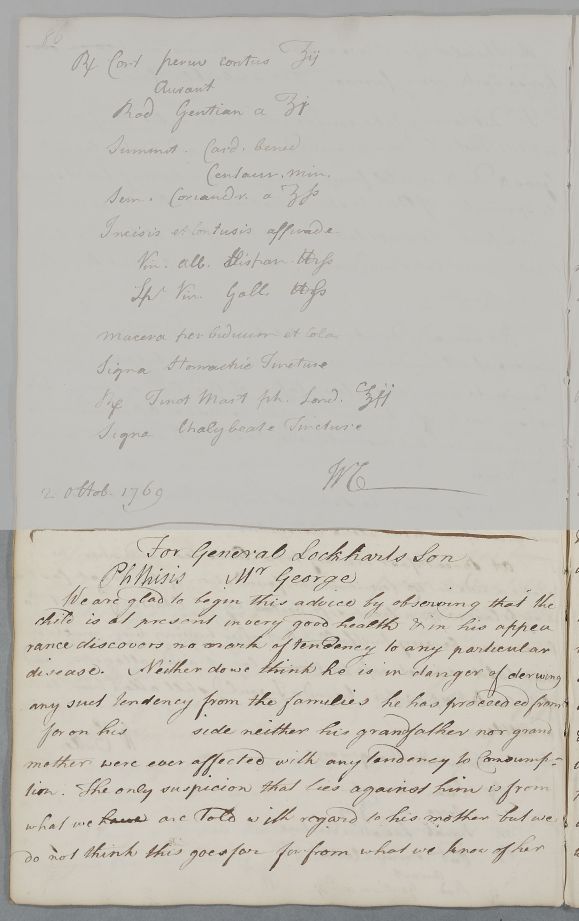 86
Rx Cort peruv contus ʒij
Aurant
Rad Gentian a ʒj
Summit. Card. bened
Centaur. min.
Sem. Coriandr. a ʒſs
Incisis et contusis affunde
Vin. alb. Hispan. ℔ſs
Sp. Vin. Gall. ℔ſs
macera per biduum et cola
Signa Stomachic Tincture
Rx Tinct Mart ph. Lond. ℥ij
Signa Chalybeate Tincture
WC
2 Octob. 1769
For General Lockharts Son
Phthisis Mr George
We are glad to begin this advice by observing that the
child is at present in very good health & in his appea
rance discovers no mark of tendency to any particular
disease. Neither do we think he is in danger of deriving
any such tendency from the families he has proceeded from
for on his side neither his grandfather nor grand
mother were ever affected with any tendency to Consump=
tion. The only suspicion that lies against him is from
what we have are told with regard to his mother but we
do not think this goes far for from what we know of her